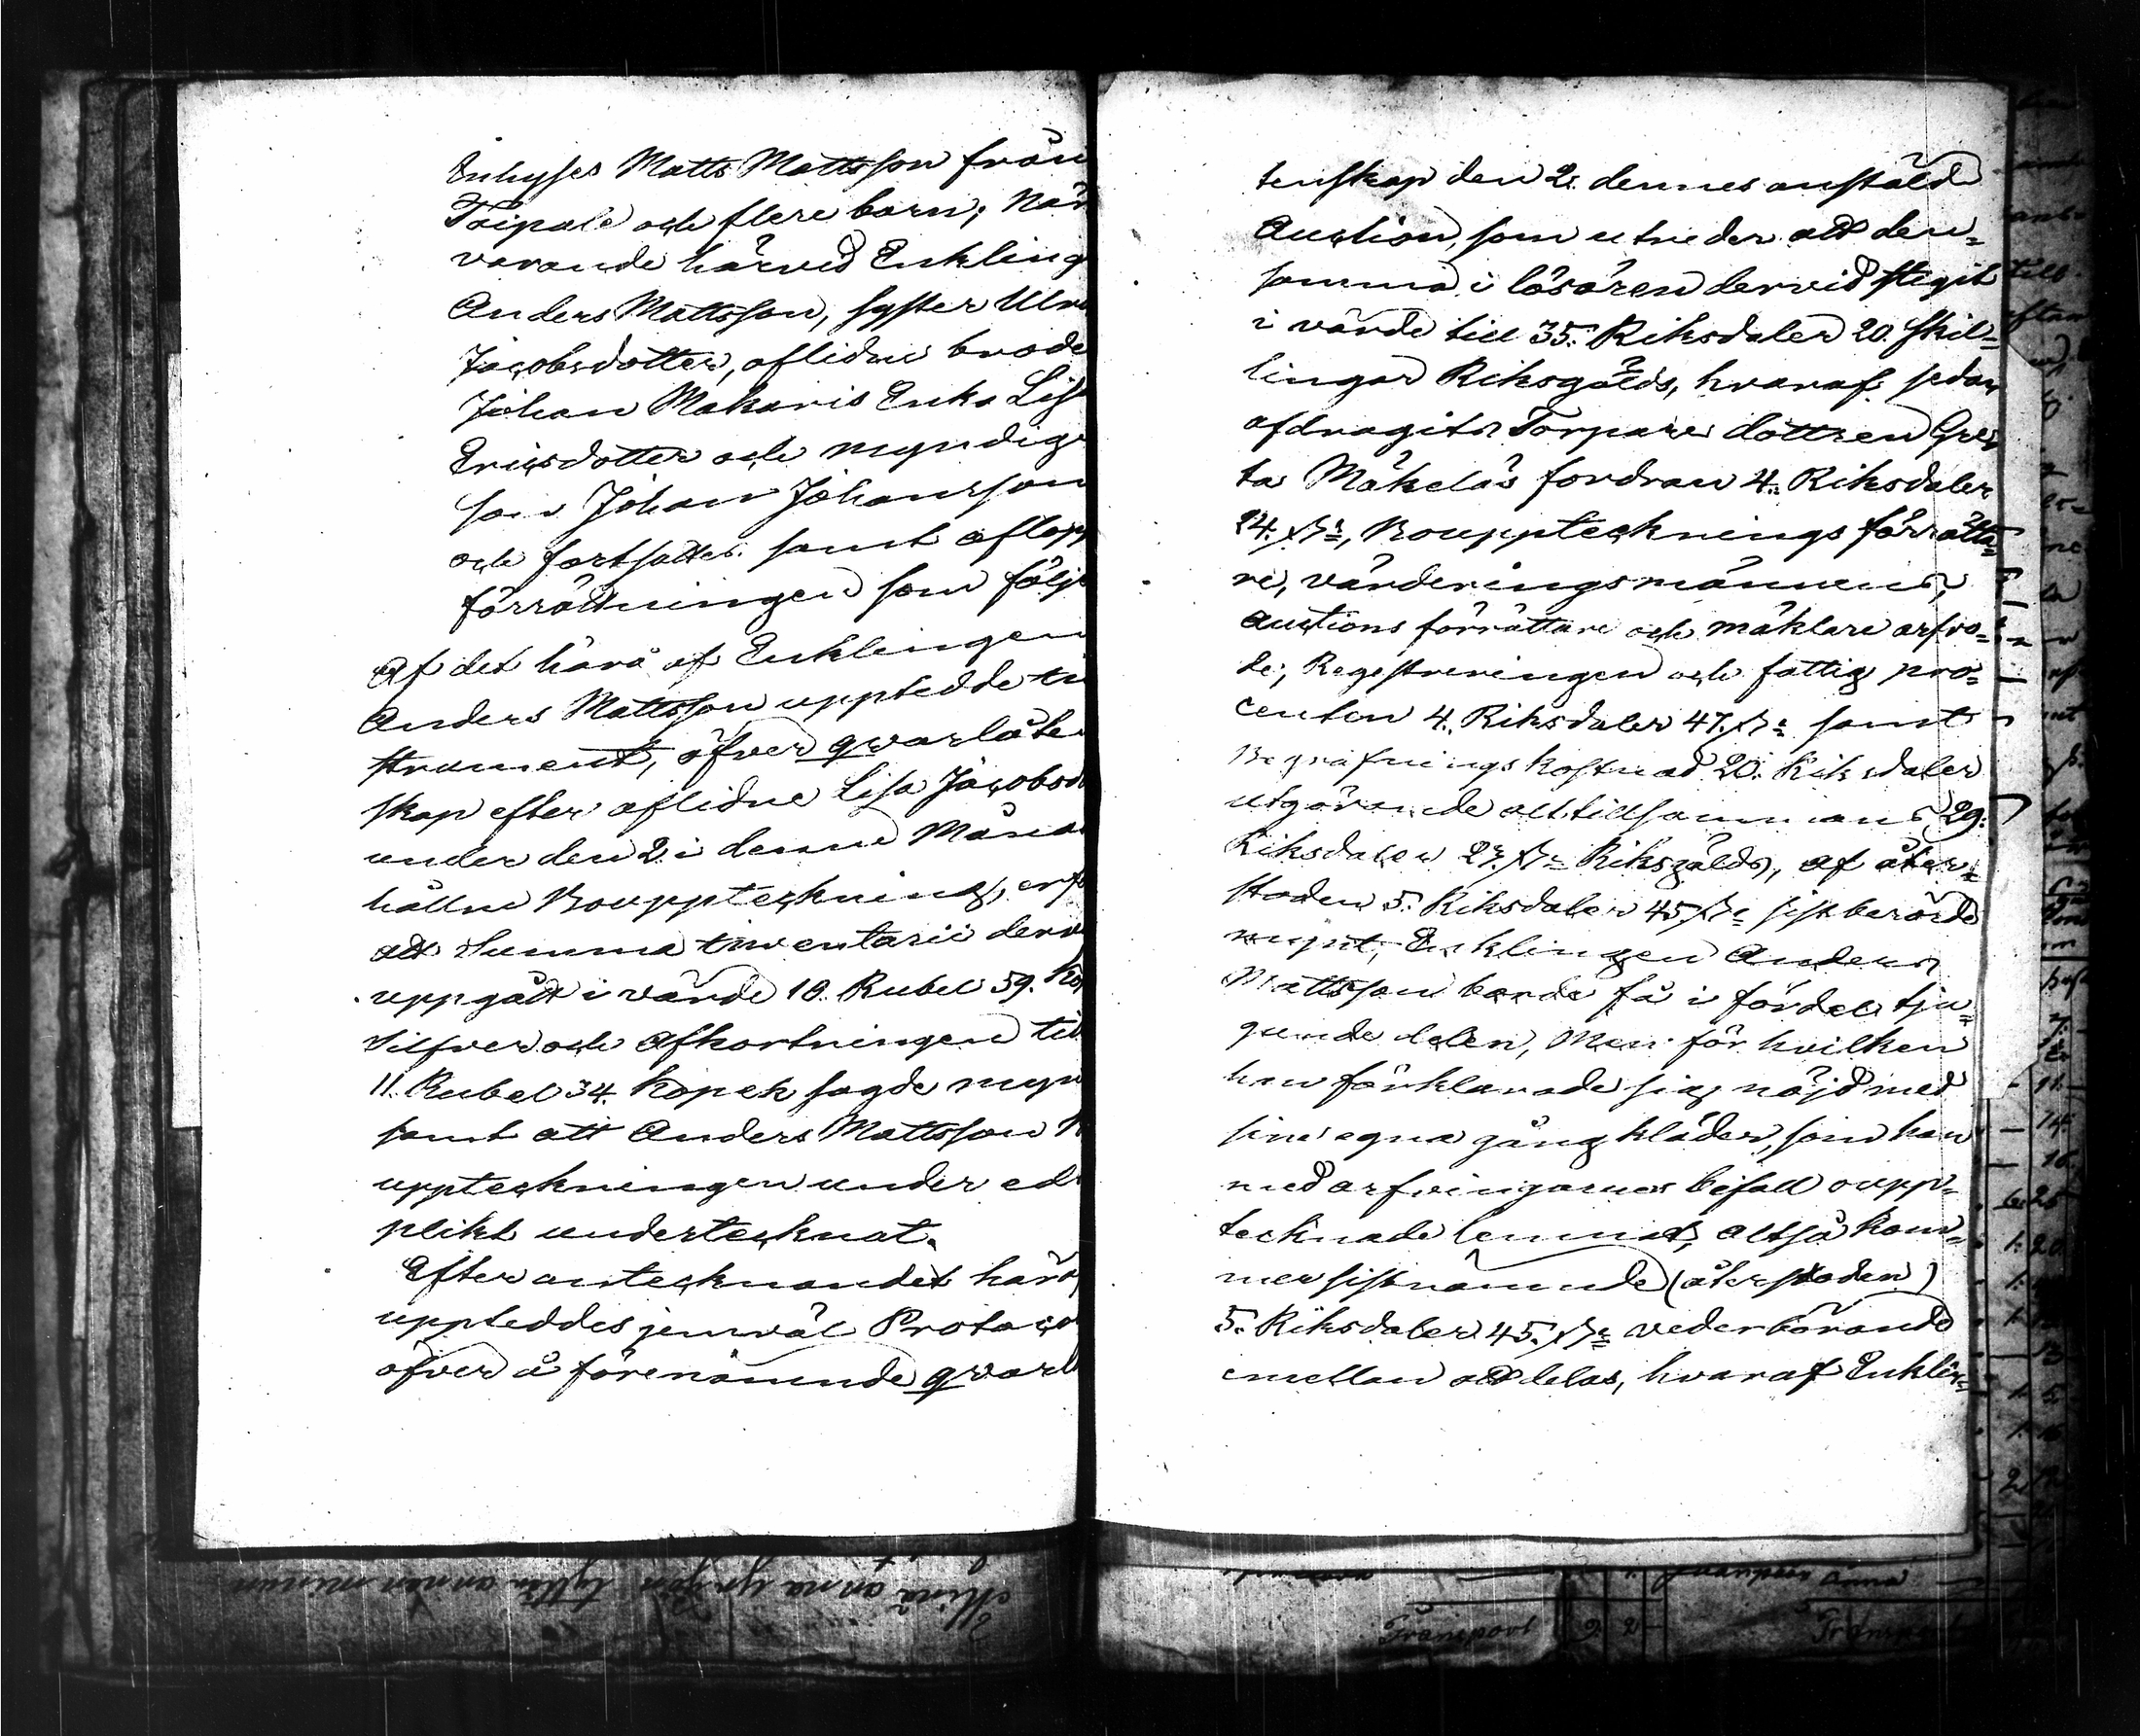 Inhyses Matts Mattsson från
Taipale och flere barn; När
varande härved Enkling
Anders Mattsson, syster Ulri
Jacobsdotter, aflidne brode
Johan Makaris Enka Lis
Ericsdotter och myndige
son Johan Johansson
och fortsattes samt aflopp
förrättningen som följe
Af det härå af Enklingen
Anders Mattsson uppteddde In
strument, öfver qvarlåten
skap efter aflidne Lisa Jacobsd
under den 2. i denne Måna
hållne Bouppteckning, erf
att Summa Inventarii derv
uppgått i värde 18. Rubel 59. Kop
Silfver och Afkortningen till
11. Rubel 34. Kopek sagde myn
samt att Anders Mattsson
uppteckningen under ed
plikt undertecknat.
Efter antecknandet häraf
uppteddes jemväl Protocol
öfver å förenämnde qvarl
tenskap den 2. dennes anstäld
Auction, som utreder att den=
samma i lösören dervid stegit
i värde till 35. Riksdaler 20. skil=
lingar Riksgälds, hvaraf sedan
afdragits Torpare dottren Gre=
ta Mäkeläs fordran 4. Riksdaler
24. s:r, Bouppteknings förrätta=
re, värderingsmännens,
Auctions förrättare och mäklare arfvo=
de, Regestreringen och fattig pro=
centen 4. Riksdaler 47. s:r samt
Begrafnings kostnad 20. Riksdaler
utgörande alt tillsammans 29.
Riksdaler 23. s:r Riksgälds, af åter=
stoden 5. Riksdaler 45 s:r sist berörde
mynt, Enklingen Anders
Mattsson borde få i fördel tju=
gunde delen, Men för hvilken
han förklarade sig nöjd med
sina egna gångkläder, som han
med arfvingarnes bifall oupp=
tecknade lemnat, altså kom=
mer sistnämnde (återstoden)
5. Riksdaler 45. s:r vederbörande
emellan att delas, hvaraf Enklin=
Transport